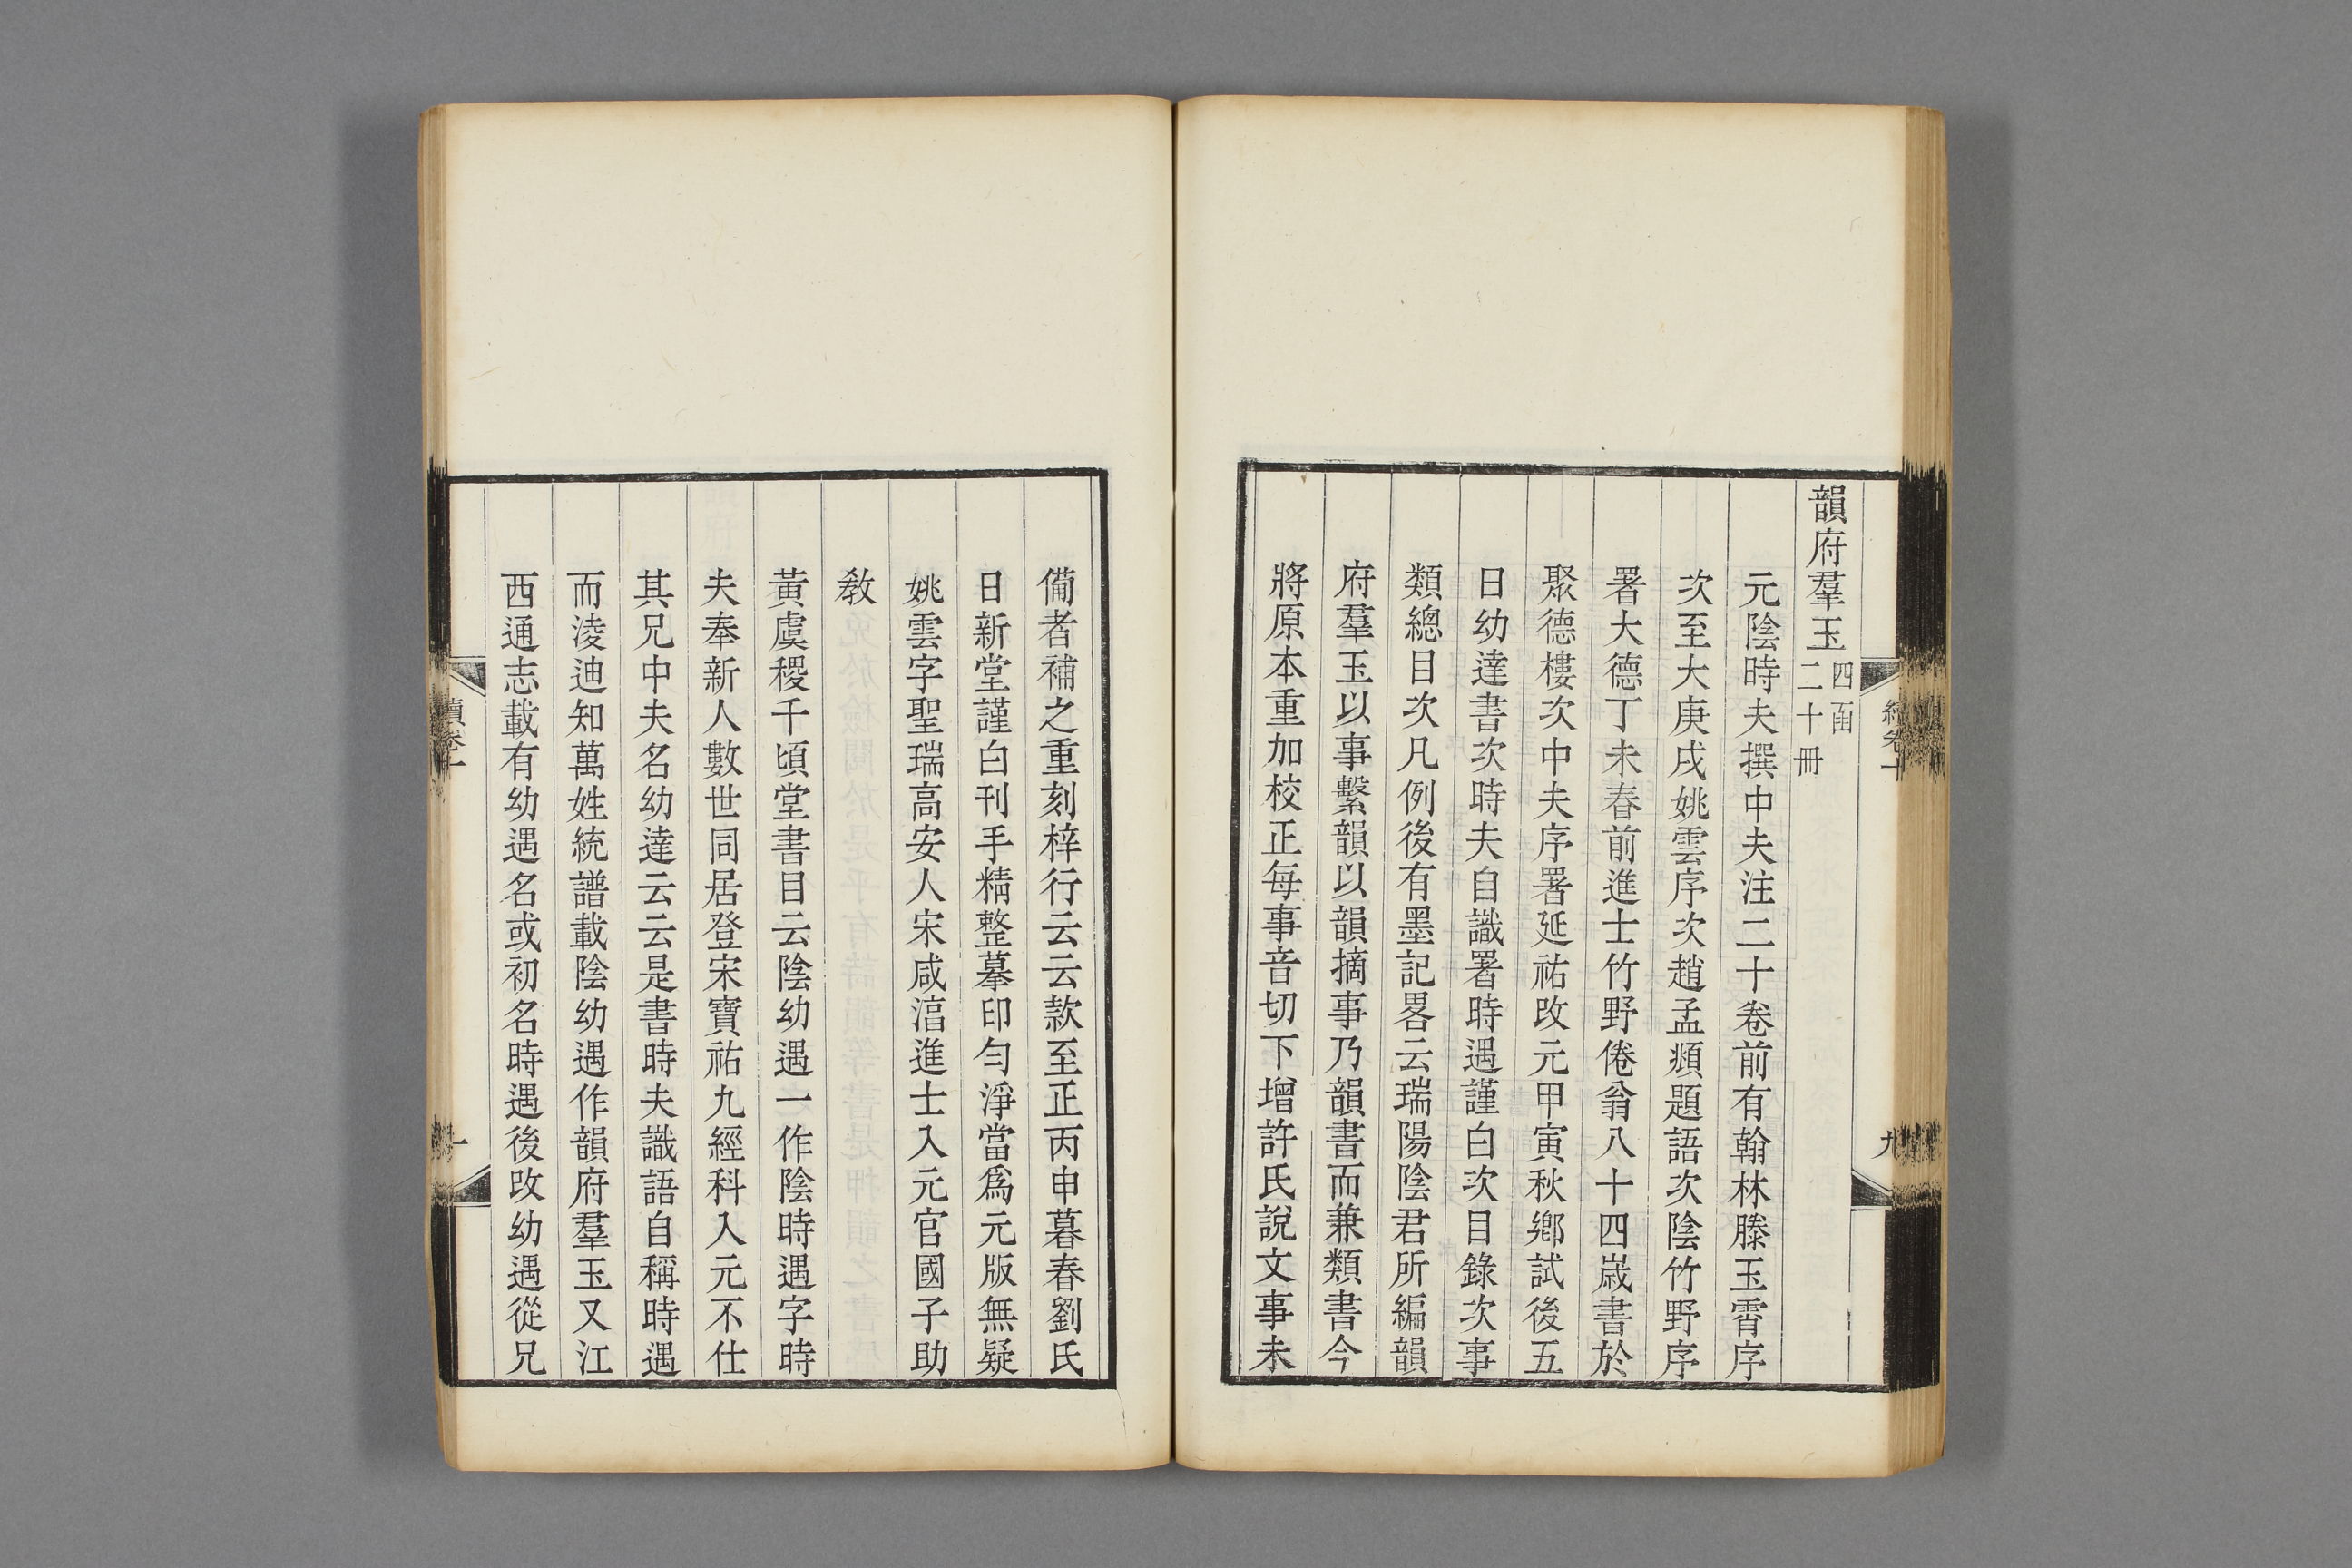 韻府羣玉四函二十冊
元陰時夫撰中夫注二十卷前有翰林滕玉霄序
次至大庚戌姚雲序次趙孟頫題語次陰竹野序
署大德丁未春前進士竹野倦翁八十四歲書於
聚德樓次中夫序署延祐改元甲寅秋鄉試後五
日幼達書次時夫自識署時遇謹白次目錄次事
類總目次凡例後有墨記畧云瑞陽陰君所編韻
府羣玉以事繫韻以韻摘事乃韻書而兼類書今
將原本重加校正每事音切下增許氏說文事未
備者補之重刻梓行云云款至正丙申暮春劉氏
日新堂謹白刊手精整摹印勻淨當爲元版無疑
姚雲字聖瑞高安人宋咸淳進士入元官國子助
敎
黃虞稷千頃堂書目云陰幼遇一作陰時遇字時
夫奉新人數世同居登宋寶祐九經科入元不仕
其兄中夫名幼達云云是書時夫識語自稱時遇
而淩迪知萬姓統譜載陰幼遇作韻府羣玉又江
西通志載有幼遇名或初名時遇後改幼遇從兄